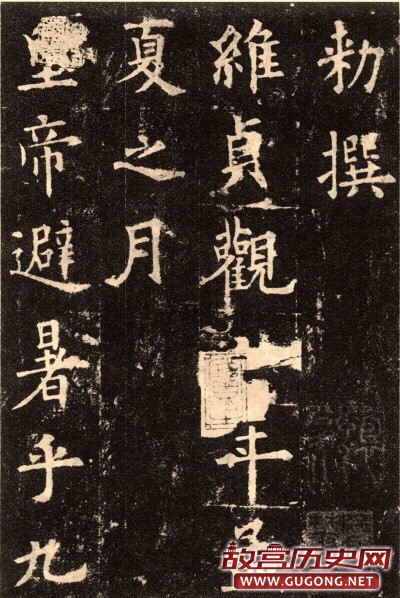 勅撰
維貞觀年孟
夏之月
皇帝避暑乎九
故宫历史网
WWW.GUGONG.NET